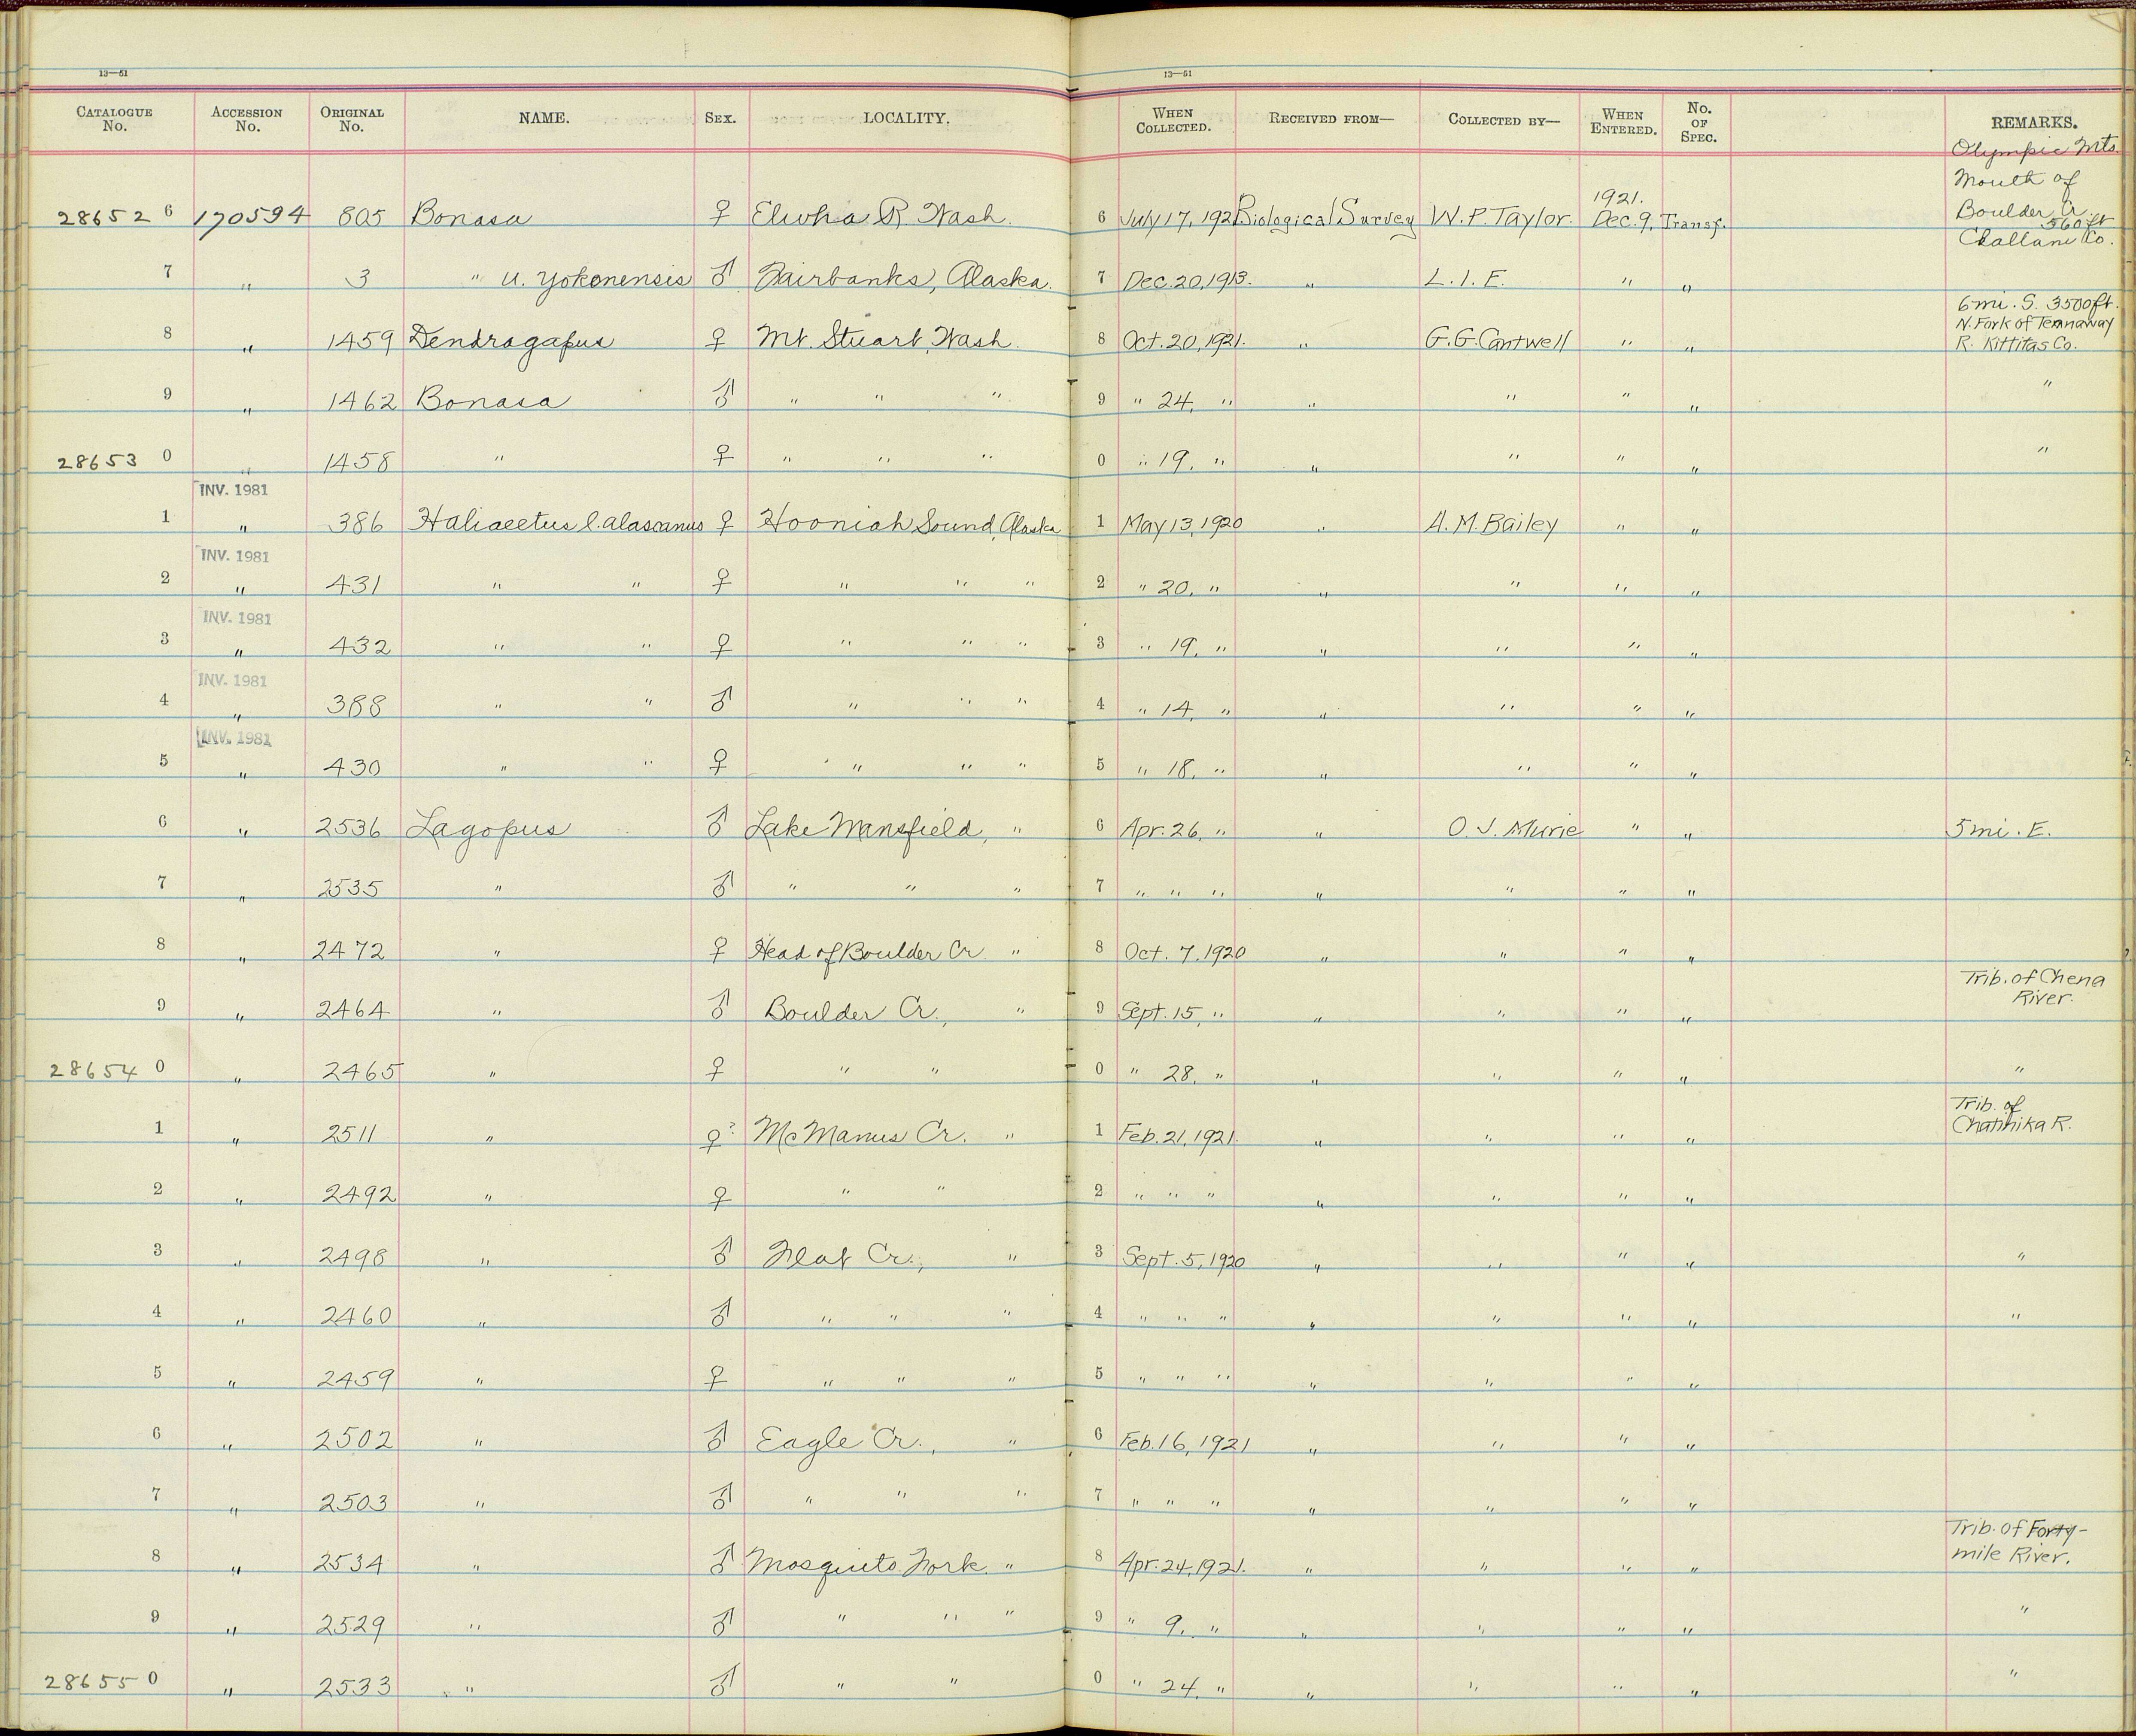 13—51 13—51
CATALOGUE No. ACCESSION No. ORIGINAL No. NAME. SEX. LOCALITY. WHEN COLLECTED. RECEIVED FROM— COLLECTED BY— WHEN ENTERED. No. OF SPEC. REMARKS.
Olympic Mts.
Mouth of
Boulder Cr.
560 ft
Challam Co.
28652 6 170594 805 Bonasa ♀ Elwha R. Wash. 6 July 17, 192 Biological Survey W. P. Taylor. 1921. Dec. 9, Transf.
7 " 3 " u. yokonensis ♂ Fairbanks, Alaska. 7 Dec. 20, 1913. " L. I. E. " "
6 mi. S. 3500 ft.
N. Fork of Tennaway
R. Kittitas Co.
8 " 1459 Dendragapus ♀ Mt. Stuart, Wash. 8 Oct. 20, 1921. " G. G. Cantwell " "
9 " 1462 Bonasa ♂ " " " 9 " 24, " " " " " "
28653 0 " 1458 " ♀ " " " 0 " 19, " " " " " "
INV. 1981
1 " 386 Haliaeetus l. alascanus ♀ Hooniah Sound, Alaska 1 May 13, 1920 " A. M. Bailey " "
INV. 1981
2 " 431 " " ♀ " " " 2 " 20, " " " " "
INV. 1981
3 " 432 " " ♀ " " " 3 " 19, " " " " "
INV. 1981
4 " 388 " " ♂ " " " 4 " 14, " " " " "
INV. 1981
5 " 430 " " ♀ " " " 5 " 18, " " " " "
6 " 2536 Lagopus ♂ Lake Mansfield, " 6 Apr. 26, " " O. J. Murie " " 5 mi. E.
7 " 2535 " ♂ " " " 7 " " " " " " "
8 " 2472 " ♀ Head of Boulder Cr. " 8 Oct. 7, 1920 " " " "
Trib. of Chena
River.
9 " 2464 " ♂ Boulder Cr., " 9 Sept. 15, " " " " "
28654 0 " 2465 " ♀ " " 0 " 28, " " " " " "
Trib. of
Chatinika R.
1 " 2511 " ♀? McManus Cr. " 1 Feb. 21, 1921. " " " "
2 " 2492 " ♀ " " 2 " " " " " " "
3 " 2498 " ♂ Neat Cr., " 3 Sept. 5, 1920 " " " " "
4 " 2460 " ♂ " " " 4 " " " " " " " "
5 " 2459 " ♀ " " " 5 " " " " " " "
6 " 2502 " ♂ Eagle Cr., " 6 Feb. 16, 1921 " " " "
7 " 2503 " ♂ " " " 7 " " " " " " "
Trib. of Forty-
mile River.
8 " 2534 " ♂ Mosquito Fork. " 8 Apr. 24, 1921. " " " "
9 " 2529 " ♂ " " " 9 " 9, " " " " " "
28655 0 " 2533 " ♂ " " 0 " 24, " " " " " "